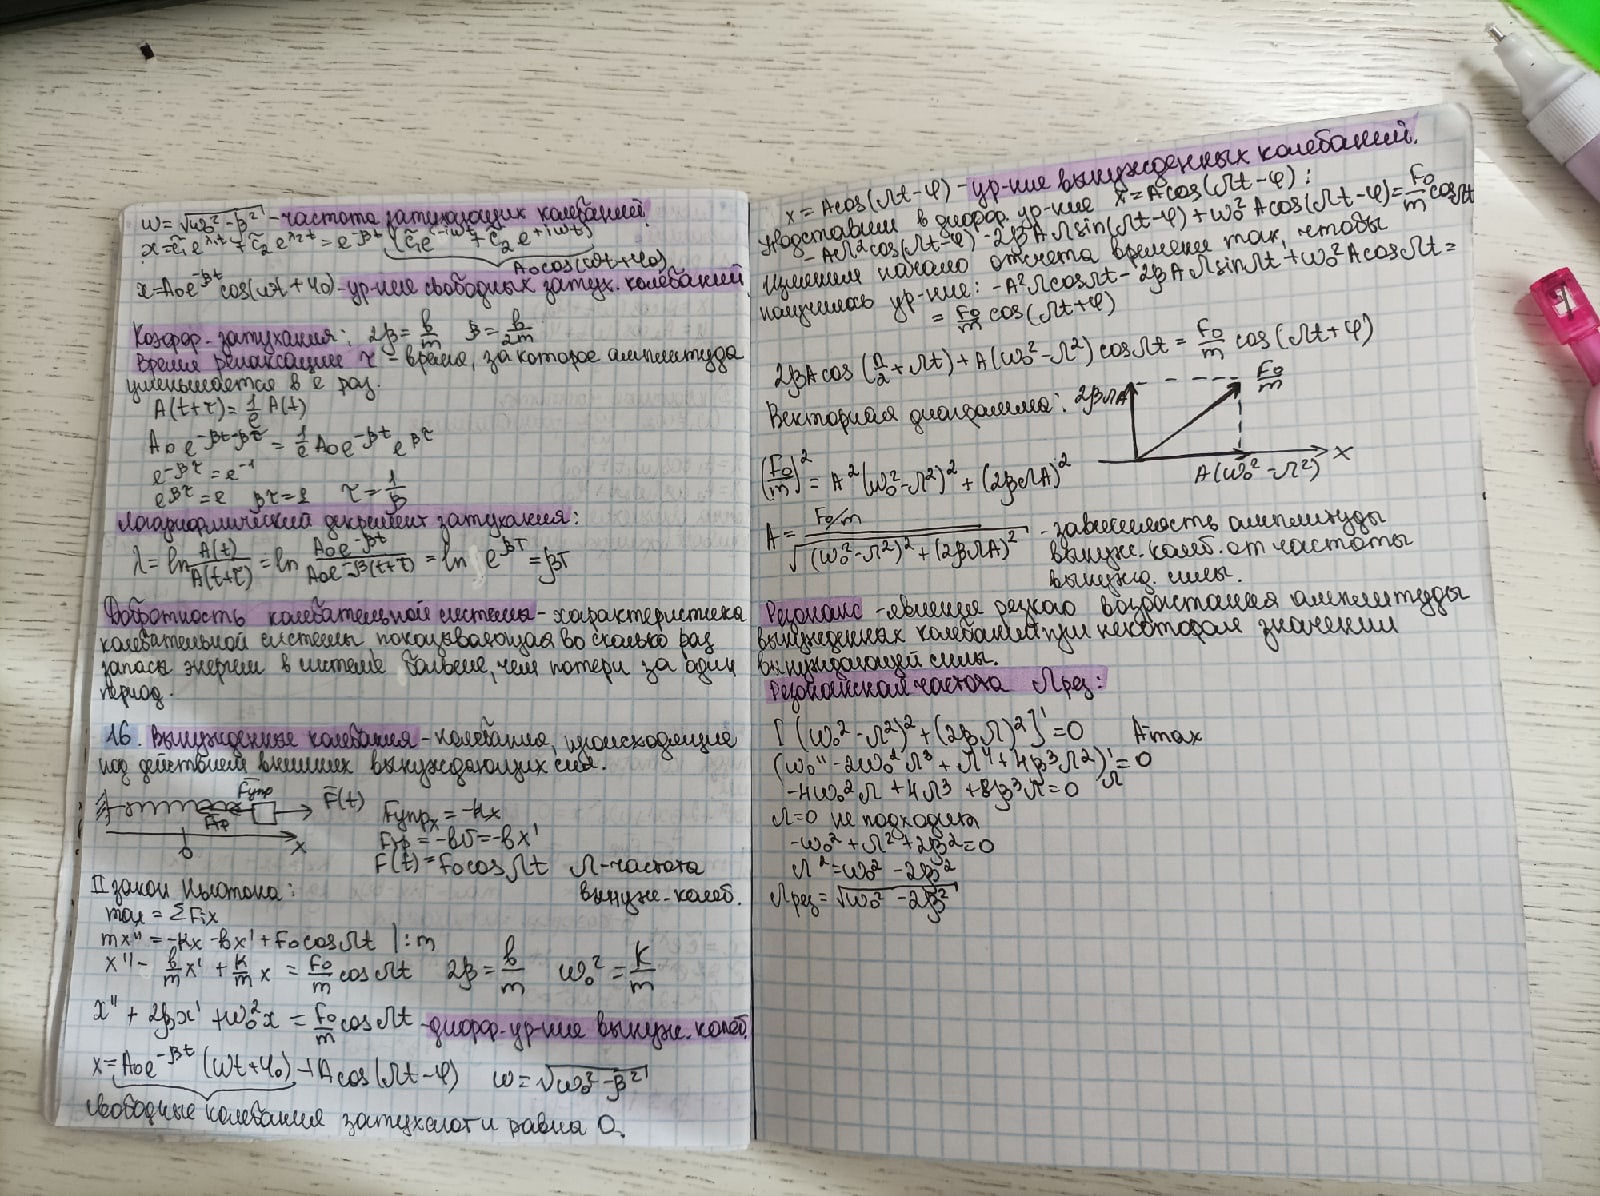 ω = √ω₀² - β² - частота затухающих колебаний
x = c̃₁e^λ₁t + c̃₂e^λ₂t = e^-βt (c̃₁e^-iωt + c̃₂e^+iωt)
A₀cos(ωt+φ₀)
x = A₀e^-βt cos(ωt + φ₀) - ур-ние свободных затух. колебаний
Коэфф. затухания: 2β = b/m β = b/2m
Время релаксации τ - время, за которое амплитуда
уменьшается в e раз.
A(t+τ) = 1/e A(t)
A₀e^-βt-βτ = 1/e A₀e^-βt e^βτ
e^-βτ = e^-1
e^βτ = e βτ = 1 τ = 1/β
Логарифмический декремент затухания:
λ = ln A(t)/A(t+τ) = ln A₀e^-βt/A₀e^-β(t+τ) = ln e^βT = βT
Добротность колебательной системы - характеристика
колебательной системы показывающая во сколько раз
запасы энергии в системе больше, чем потери за один
период.
16. Вынужденные колебания - колебания, происходящие
под действием внешних вынуждающих сил.
Fупр F̄(t) Fупрₓ = -kx
Fтр Fтр = -bv = -bx'
0 x F(t) = F₀cosΩt Ω-частота
II закон Ньютона: вынуж. колеб.
maₓ = ΣFᵢx
mx'' = -kx - bx' + F₀cosΩt |:m
x'' - b/m x' + k/m x = F₀/m cosΩt 2β = b/m ω₀² = k/m
x'' + 2βx' + ω₀²x = F₀/m cosΩt - дифф. ур-ние вынуж. колеб.
x = A₀e^-βt (ωt+φ₀) + A cos(Ωt-φ) ω = √ω₀² - β²
свободные колебания затухают и равна 0.
x = Acos(Ωt-φ) - ур-ние вынужденных колебаний.
Подставим в дифф. ур-ние x = Acos(Ωt-φ):
-AΩ²cos(Ωt-φ) - 2βAΩsin(Ωt-φ) + ω₀²Acos(Ωt-φ) = F₀/m cosΩt
Изменим начало отсчета времени так, чтобы
получилось ур-ние: -A²ΩcosΩt - 2βAΩsinΩt + ω₀²AcosΩt =
= F₀/m cos(Ωt+φ)
2βAcos(π/2 + Ωt) + A(ω₀²-Ω²)cosΩt = F₀/m cos(Ωt+φ)
Векторная диаграмма: 2βΩA F₀/m
A(ω₀²-Ω²) x
(F₀/m)² = A²(ω₀²-Ω²)² + (2βΩA)²
A = F₀/m / √(ω₀²-Ω²)² + (2βΩA)² - зависимость амплитуды
вынуж. колеб. от частоты
вынужд. силы.
Резонанс - явление резкого возрастания амплитуды
вынужденных колебаний при некотором значении
вынуждающей силы.
Резонансная частота Ωрез:
[(ω₀²-Ω²)² + (2βΩ)²]' = 0 A-max
(ω₀⁴ - 2ω₀²Ω³ + Ω⁴ + 4β³Ω²)'Ω = 0
-4ω₀²Ω + 4Ω³ + 8β³Ω = 0
Ω=0 не подходит
-ω₀² + Ω² + 2β² = 0
Ω² = ω₀² - 2β²
Ωрез = √ω₀² - 2β²